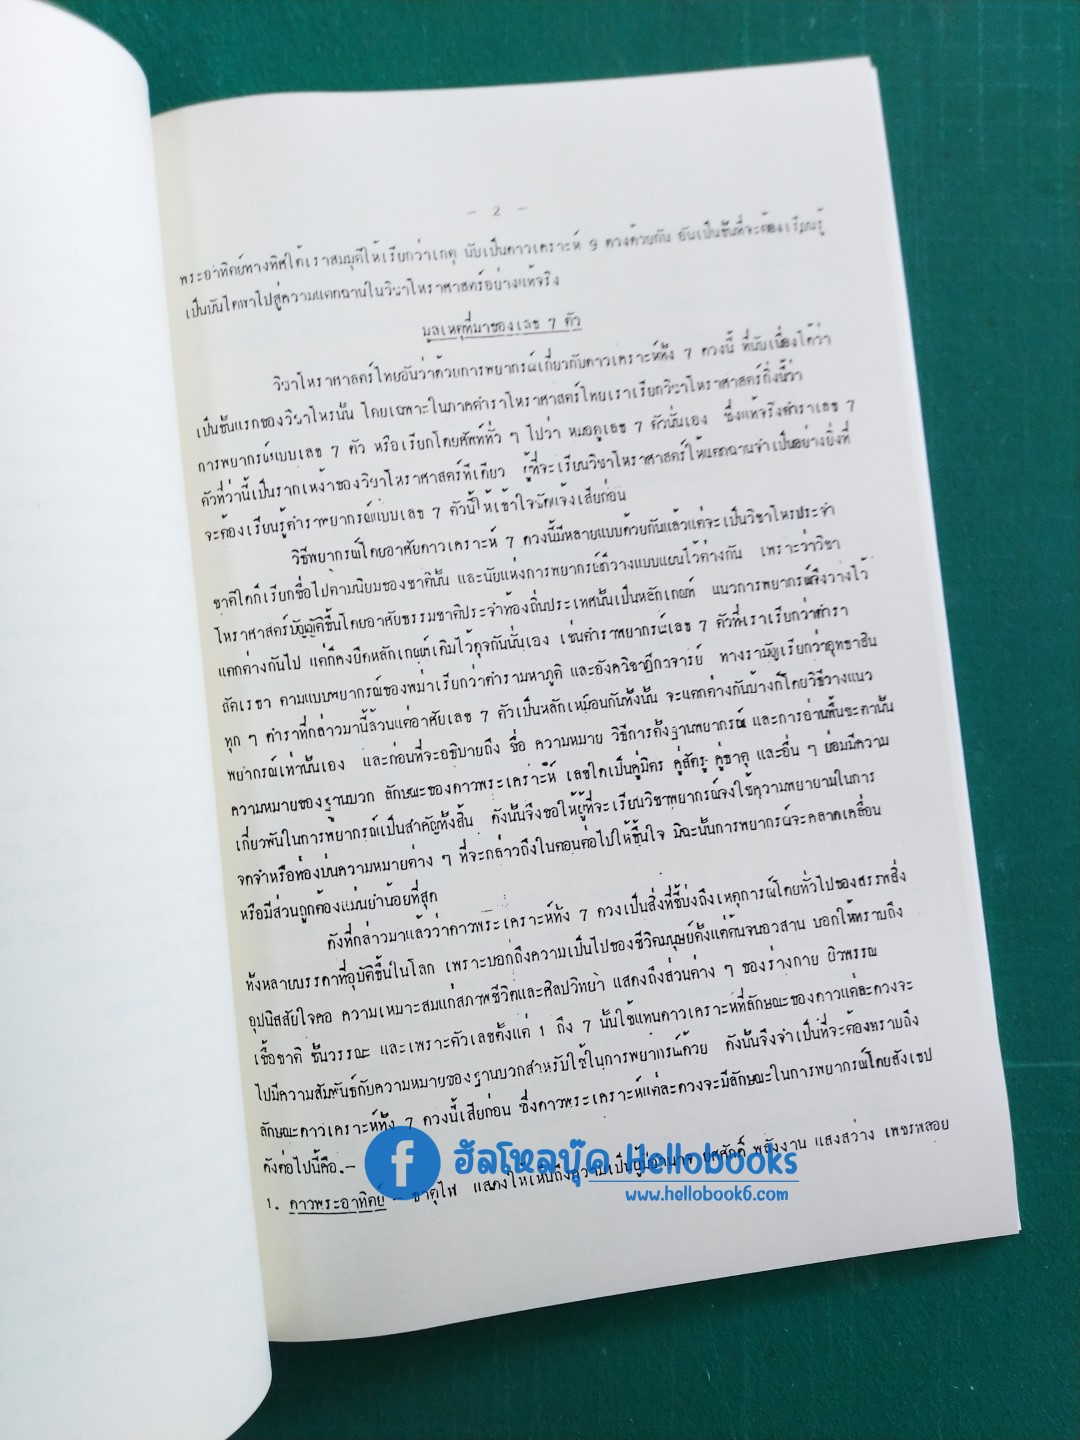 - 2 -
พระอาทิตย์ทางทิศใต้เราสมมุติให้เรียกว่าเกตุ นับเป็นดาวเคราะห์ 9 ดวงด้วยกัน อันเป็นขั้นที่จะต้องเรียนรู้
เป็นบันไดพาไปสู่ความแตกฉานในวิชาโหราศาสตร์อย่างแท้จริง
มูลเหตุที่มาของเลข 7 ตัว
วิชาโหราศาสตร์ไทยอันว่าด้วยการพยากรณ์เกี่ยวกับดาวเคราะห์ทั้ง 7 ดวงนี้ ที่นับเนื่องได้ว่า
เป็นขั้นแรกของวิชาโหรนั้น โดยเฉพาะในภาคตำราโหราศาสตร์ไทยเราเรียกวิชาโหราศาสตร์กิ่งนี้ว่า
การพยากรณ์แบบเลข 7 ตัว หรือเรียกโดยศัพท์ทั่ว ๆ ไปว่า หมอดูเลข 7 ตัวนั่นเอง ซึ่งแท้จริงตำราเลข 7
ตัวที่ว่านี้เป็นรากเหง้าของวิชาโหราศาสตร์ทีเดียว ผู้ที่จะเรียนวิชาโหราศาสตร์ให้แตกฉานจำเป็นอย่างยิ่งที่
จะต้องเรียนรู้ตำราพยากรณ์แบบเลข 7 ตัวนี้ให้เข้าใจชัดแจ้งเสียก่อน
วิธีพยากรณ์โดยอาศัยดาวเคราะห์ 7 ดวงนี้มีหลายแบบด้วยกันแล้วแต่จะเป็นวิชาโหรประจำ
ชาติใดก็เรียกชื่อไปตามนิยมของชาตินั้น และนัยแห่งการพยากรณ์ก็วางแบบแผนไว้ต่างกัน เพราะว่าวิชา
โหราศาสตร์บัญญัติขึ้นโดยอาศัยธรรมชาติประจำท้องถิ่นประเทศนั้นเป็นหลักเกณฑ์ แนวการพยากรณ์จึงวางไว้
แตกต่างกันไป แต่ก็คงยึดหลักเกณฑ์เดิมไว้ดุจกันนั่นเอง เช่นตำราพยากรณ์เลข 7 ตัวที่เราเรียกว่าตำรา
ลัคเรขา ตามแบบพยากรณ์ของพม่าเรียกว่าตำรามหาภูติ และอังควิชาฎีกาจารย์ ทางรามัญเรียกว่าอุทธาสิน
ทุก ๆ ตำราที่กล่าวมานี้ล้วนแต่อาศัยเลข 7 ตัวเป็นหลักเหมือนกันทั้งนั้น จะแตกต่างกันบ้างก็โดยวิธีวางแนว
พยากรณ์เท่านั้นเอง และก่อนที่จะอธิบายถึง ชื่อ ความหมาย วิธีการตั้งฐานพยากรณ์ และการอ่านพื้นชะตานั้น
ความหมายของฐานบวก ลักษณะของดาวพระเคราะห์ เลขใดเป็นคู่มิตร คู่สัตรู คู่ธาตุ และอื่น ๆ ย่อมมีความ
เกี่ยวพันในการพยากรณ์เป็นสำคัญทั้งสิ้น ดังนั้นจึงขอให้ผู้ที่จะเรียนวิชาพยากรณ์จงใช้ความพยายามในการ
จดจำหรือท่องบ่นความหมายต่าง ๆ ที่จะกล่าวถึงในตอนต่อไปให้ขึ้นใจ มิฉะนั้นการพยากรณ์จะคลาดเคลื่อน
หรือมีส่วนถูกต้องแม่นยำน้อยที่สุด
ดังที่กล่าวมาแล้วว่าดาวพระเคราะห์ทั้ง 7 ดวงเป็นสิ่งที่ชี้บ่งถึงเหตุการณ์โดยทั่วไปของสรรพสิ่ง
ทั้งหลายบรรดาที่อุบัติขึ้นในโลก เพราะบอกถึงความเป็นไปของชีวิตมนุษย์ตั้งแต่ต้นจนอวสาน บอกให้ทราบถึง
อุปนิสสัยใจคอ ความเหมาะสมแก่สภาพชีวิตและศิลปวิทยา แสดงถึงส่วนต่าง ๆ ของร่างกาย ผิวพรรณ
เชื้อชาติ ชั้นวรรณะ และเพราะตัวเลขตั้งแต่ 1 ถึง 7 นั้นใช้แทนดาวเคราะห์ที่ลักษณะของดาวแต่ละดวงจะ
ไปมีความสัมพันธ์กับความหมายของฐานบวกสำหรับใช้ในการพยากรณ์ด้วย ดังนั้นจึงจำเป็นที่จะต้องทราบถึง
ลักษณะดาวเคราะห์ทั้ง 7 ดวงนี้เสียก่อน ซึ่งดาวพระเคราะห์แต่ละดวงจะมีลักษณะในการพยากรณ์โดยสังเขป
ดังต่อไปนี้คือ.-
1. ดาวพระอาทิตย์ - ธาตุไฟ แสดงให้เห็นถึงความเป็นผู้มีอำนาจ ยศศักดิ์ พลังงาน แสงสว่าง เพชรพลอย
f ฮัลโหลบุ๊ค Hellobooks
www.hellobook6.com